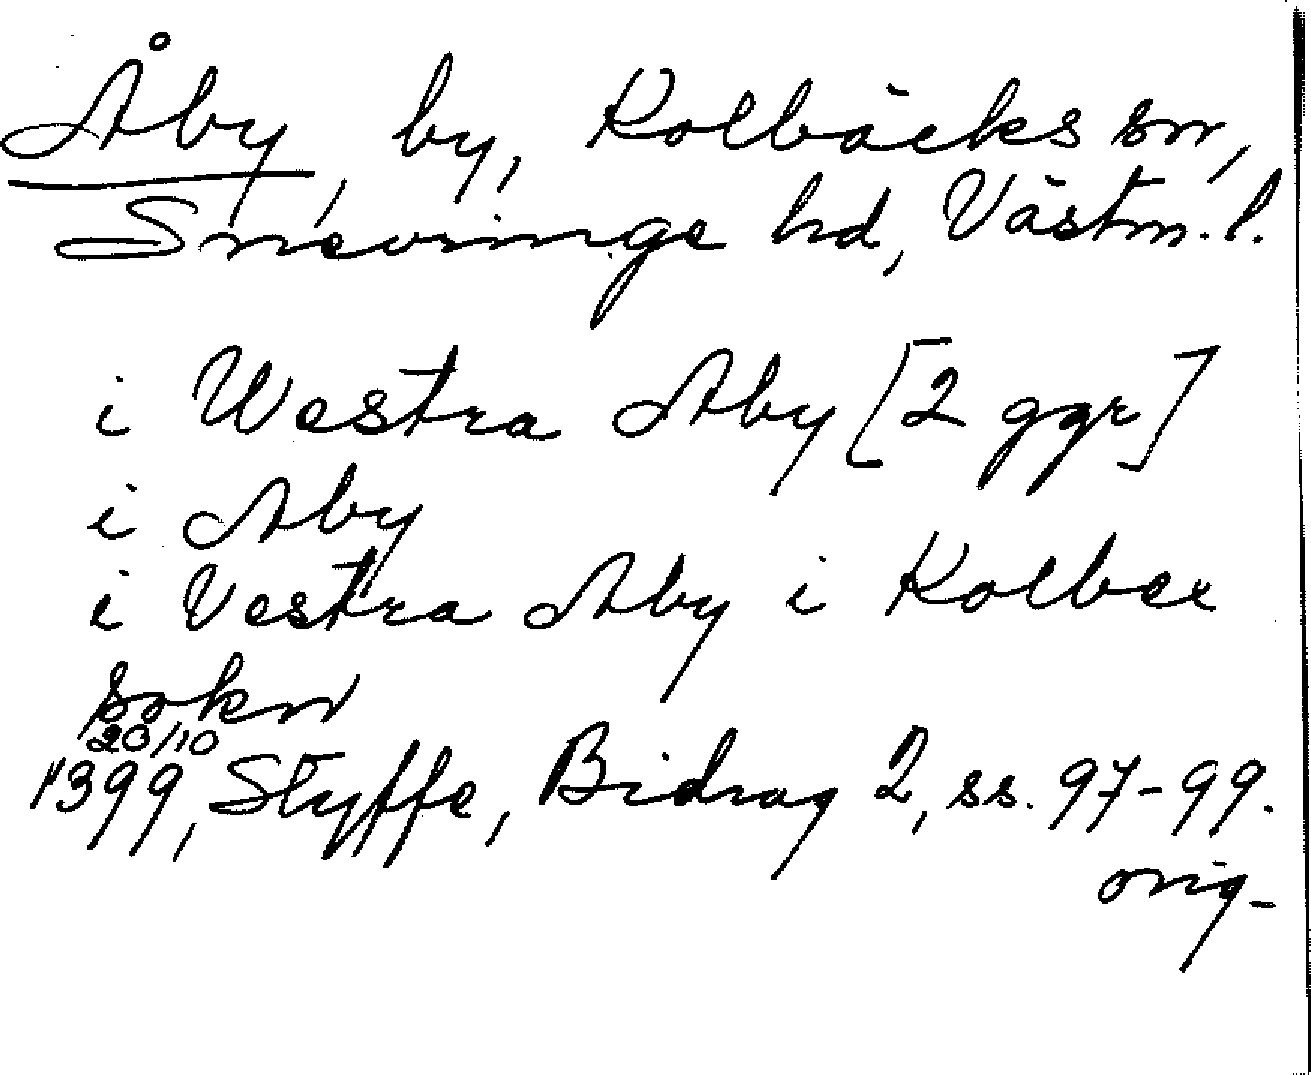 Åby, by, Kolbäcks sn,
Snevringe hd, Västm. l.
i Westra Aby [2 ggr]
i Aby
i Vestra Aby i Kolbex
sokn
20/10
1399, Styffe, Bidrag 2, ss. 97-99.
orig.